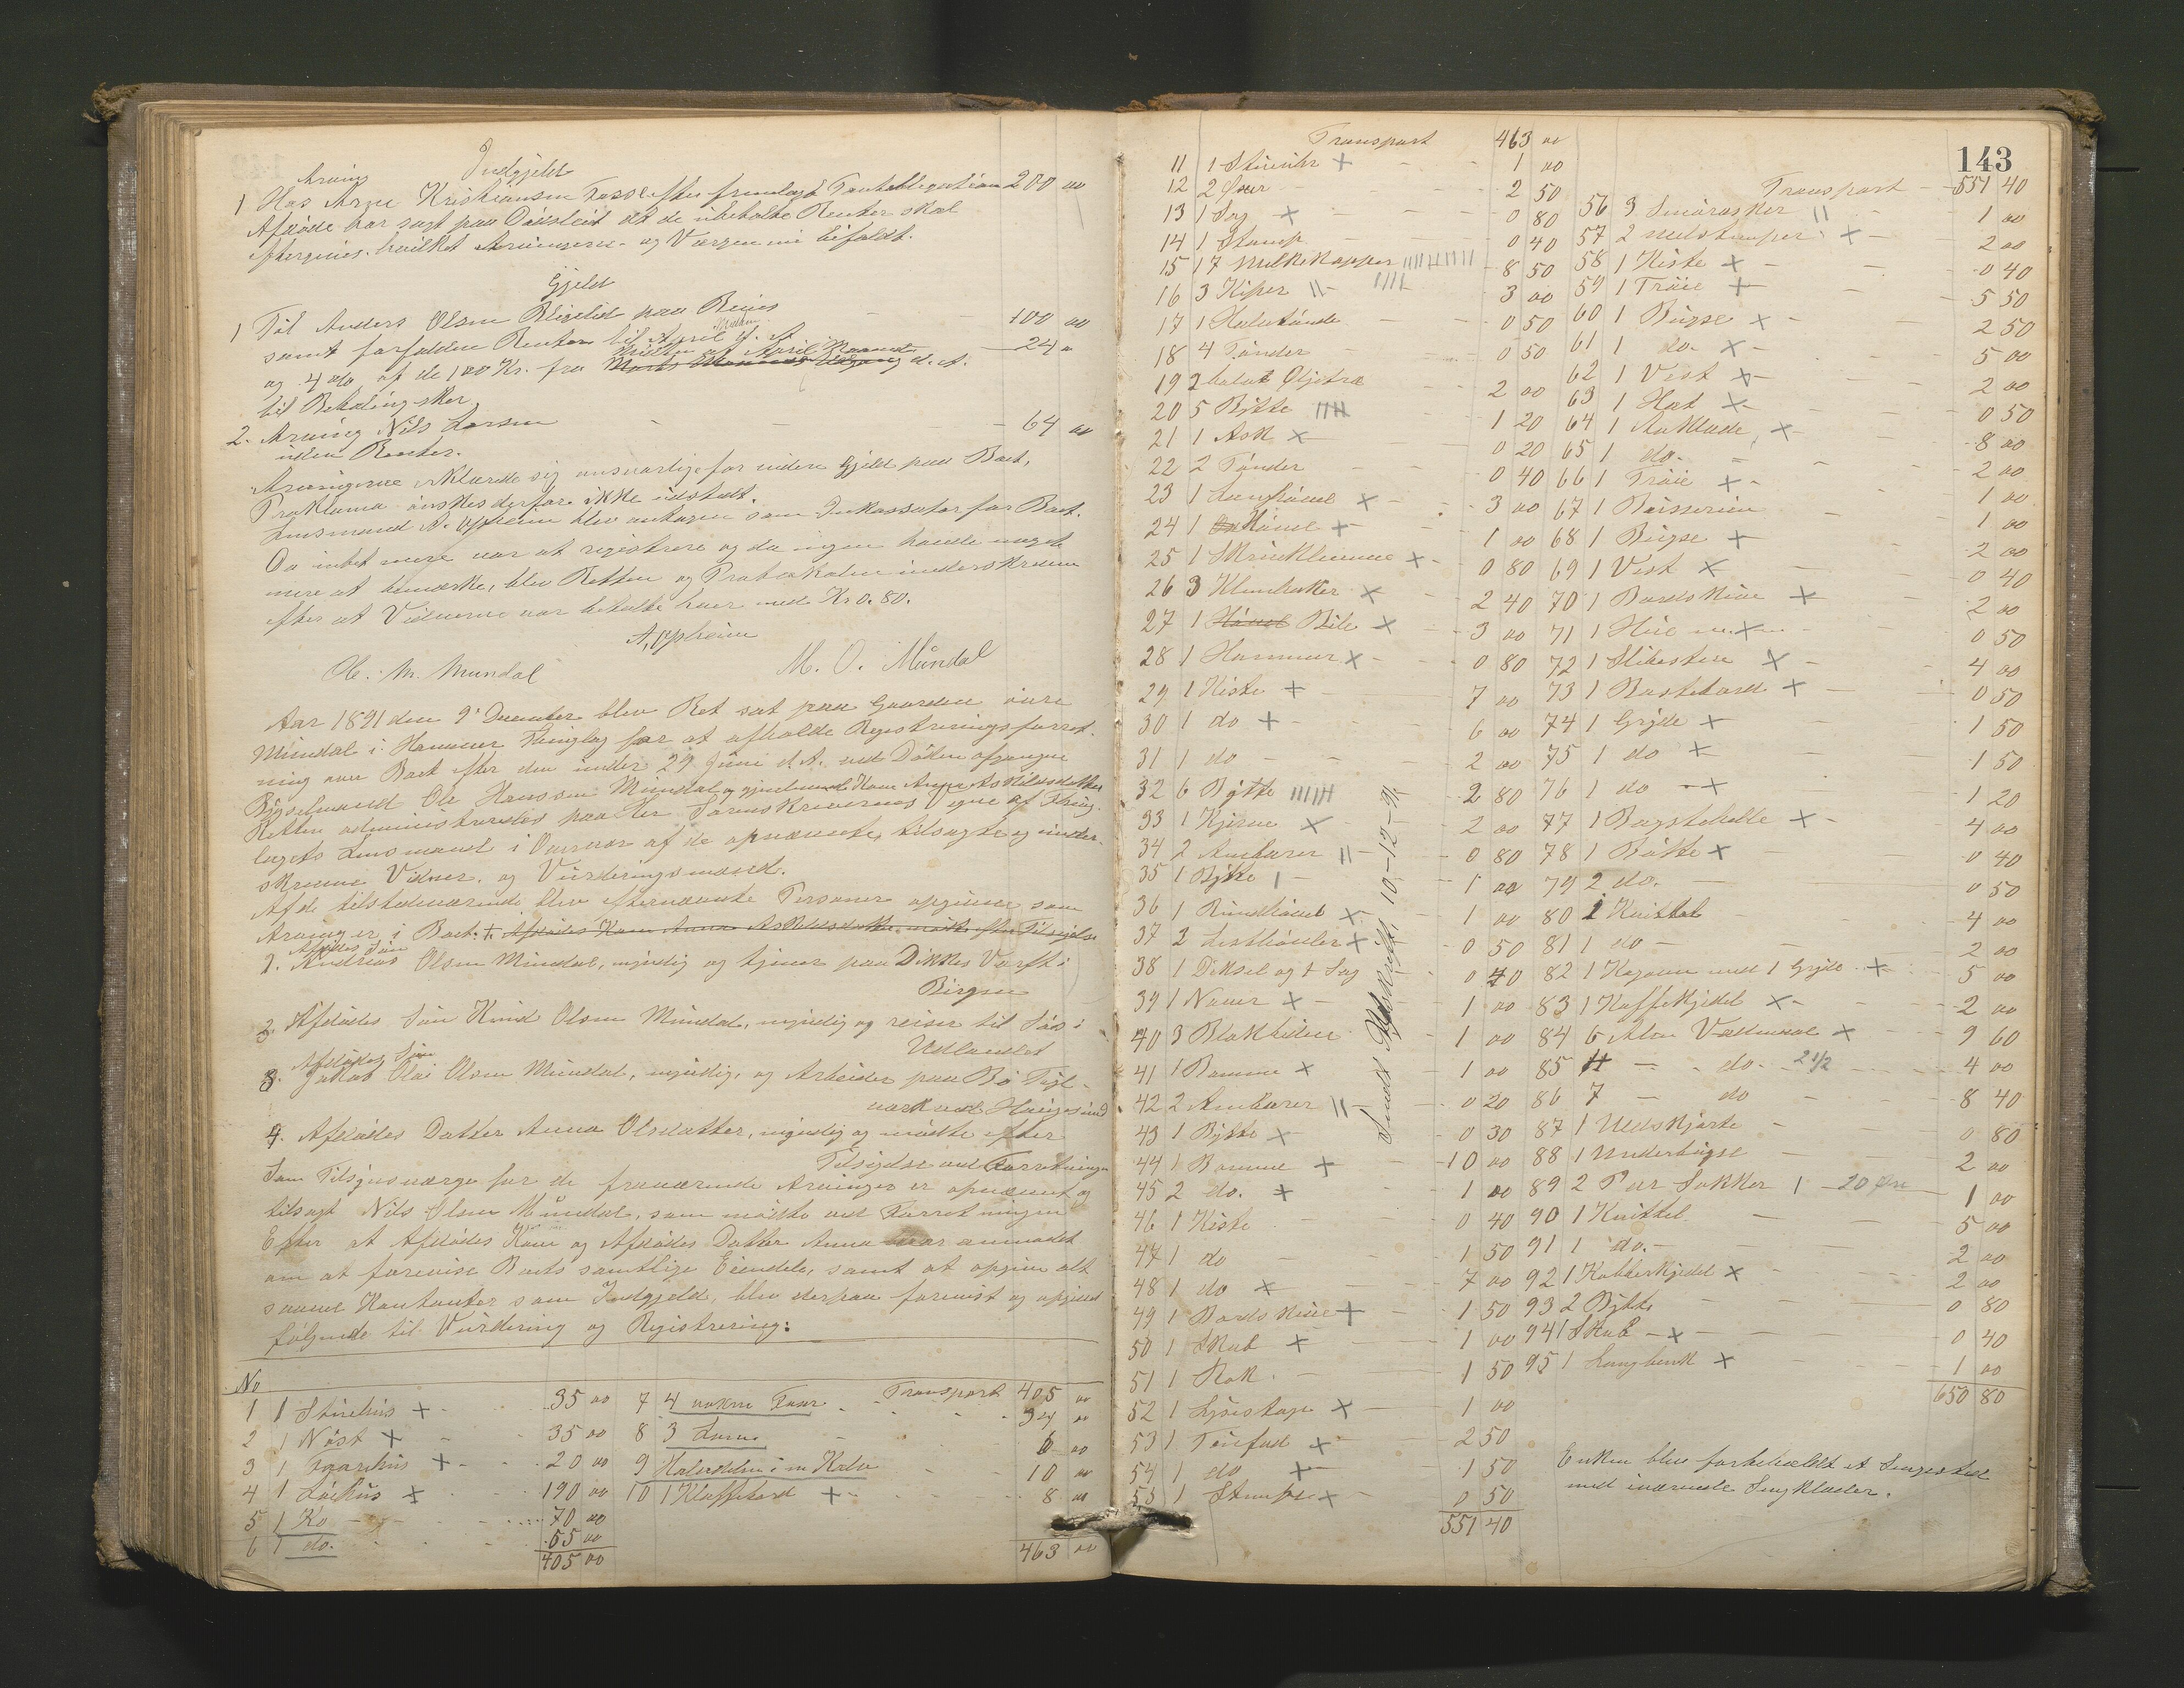 Indgjeld
Arving
1 Hos Arne Kristiansen Fosse efter fremlagt Panteobligation 200 00
Afdøde har sagt paa Dødsleiet at de ubetalte Renter skal
eftergives. hvilket Arvingerne og Værgerne bifaldt.
Gjeld
1 Til Anders Olsen paa 100 00
samt forfalden Renter til April d. A. 24 00
og 4 o/o af de 100 Kr. fra Midten af April Maaned d. A.
til Betaling sker
2. Arving Nils Larsen - - - 64 00
uden Renter.
Arvingerne erklærede sig ansvarlige for videre Gjeld paa Boet,
Proklama ønskes derfor ikke udstedt.
Lensmand A. Opheim blev antagen som Inkassator for Boet.
Da intet mere var at registrere og da ingen havde noget
mere at bemærke, blev Retten og Protokollen underskreven
efter at Vidnerne var betalte hver med Kr 0.80.
A. Opheim
Ole. M. Mundal M. O. Mündal
Aar 1891 den 9de December blev Ret sat paa Gaarden øvre
Mündal i Hammer Thinglag for at afholde Registreringsforret-
ning over Boet efter den under 29 Juni d. A. ved Døden afgangne
Bygselmand Ole Hansen Mündal og gjenlevende Kone Anna Askildsdatter
Retten administreredes paa Hr Sorenskriverens Vegne af Thing-
lagets Lensmand i Overvær af de opnævnte, tilsagte og under-
skrevne Vidner. og Vurderingsmænd.
Af de tilstedeværende blev efternævnte Personer opgivne som
Arvinger i Boet: 1. Afdødes Kone Anna Askildsdatter, mødte efter Tilsigelse
Afdødes Søn
1. Andreas Olsen Mündal, myndig og tjener paa Dikkes Værft i
Bergen
2. Afdødes Søn Knud Olsen Mündal, myndig og reiser til Søs i
Udlandet
Afdødes Søn
3. Jakob Olai Olsen Mündal, myndig, og Arbeider paa Bø Tegl-
værk ved Haugesund
4. Afdødes Datter Anna Olsdatter, myndig og mødte efter
Tilsigelse ved Forretningen
Som Tilsynsværge for de fraværende Arvinger er opnævnt og
tilsagt Nils Olsen Mündal, som mødte ved Forretningen
Efter at Afdødes Kone og Afdødes Datter Anna var anmodet
om at forevise Boets samtlige Eiendele, samt at opgive alt
saavel Kontanter som Indgjeld, blev derpaa forevist og opgivet
følgende til Vurdering og Registrering:
No
1 1 Stuehus + 35 00
2 1 Nøst + 35 00
3 1 + 20 00
4 1 Løehus + 190 00
5 1 Ko - 70 00
6 1 do. 55 00
405 00
Transport 405 00
7 4 voksne Faar 34 00
8 3 Lam. 6 00
9 Halvdelen i en Kalv 10 00
10 1 Klaffebord + 8 00
463 00
Transport 463 00
11 1 + 1 00
12 2 2 50
13 1 Sag + 0 80
14 1 Stamp 0 40
15 17 Melkekopper 8 50
16 3 Kiper 3 00
17 1 0 50
18 4 Tønder 0 50
19 2 2 00
20 5 Bøtte 1 20
21 1 Ask + 0 20
22 2 Tønder 0 40
23 1 + 3 00
24 1 Høvel + 1 00
25 1 + 0 80
26 3 + 2 40
27 1 Høvel Bile + 3 00
28 1 Hammer + 0 80
29 1 Kiste + 7 00
30 1 do + 6 00
31 1 do - 2 00
32 6 Bøtte 2 80
33 1 Kjerne + 2 00
34 2 Ambarer 0 80
35 1 Bøtte 1 00
36 1 + 1 00
37 2 Listhøvler + 0 50
38 1 Diksel og 1 Sag 0 40
39 1 Naver + 1 00
40 3 1 00
41 1 Bomme + 1 00
42 2 Ambarer 0 20
43 1 Bøtte + 0 30
44 1 Bomme + 10 00
45 2 do. + 1 00
46 1 Kiste 0 40
47 1 do 1 50
48 1 do + 7 00
49 1 Bordskive + 1 50
50 1 Skab + 1 00
51 1 Rok 1 50
52 1 + 1 00
53 1 + 2 50
54 1 do + 1 50
55 1 + 0 50
551 40
Sendt Afskrift 10-12-91
143
Transport 551 40
56 3 Smørasker 1 00
57 2 + 2 00
58 1 Kiste + 0 40
59 1 Trøie + 5 50
60 1 Bugse + 2 50
61 1 do. + 5 00
62 1 Vest + 2 00
63 1 Hat + 0 50
64 1 Aaklæde + 8 00
65 1 do. 2 00
66 1 Trøie + 1 00
67 1 1 00
68 1 Bugse + 2 00
69 1 Vest + 0 40
70 1 Bordskive + 2 00
71 1 + 0 50
72 1 Slibesten + 4 00
73 1 + 0 50
74 1 Gryde + 1 50
75 1 do + 1 50
76 1 do + 1 20
77 1 Bagstehelle + 4 00
78 1 Bøtte + 0 40
79 2 do. 0 50
80 1 Kvittel 4 00
81 1 do 2 00
82 1 med 1 Gryde + 5 00
83 1 Kaffekjedel + 2 00
84 6 Alen Vadmel + 9 60
85 do. 2 1/2 4 00
86 7 - do 8 40
87 1 Uldskjorte 0 80
88 1 Underbugse 2 00
89 2 Par Sokker 1 20 Øre 1 00
90 1 Kvittel 5 00
91 1 do. 2 00
92 1 Kobberkjedel + 2 00
93 2 Bøtte 0 80
94 1 Skab + 0 40
95 1 Langbenk + 1 00
650 80
Enken blev forbeholdt et Sengested
med iværende Sengklæder.